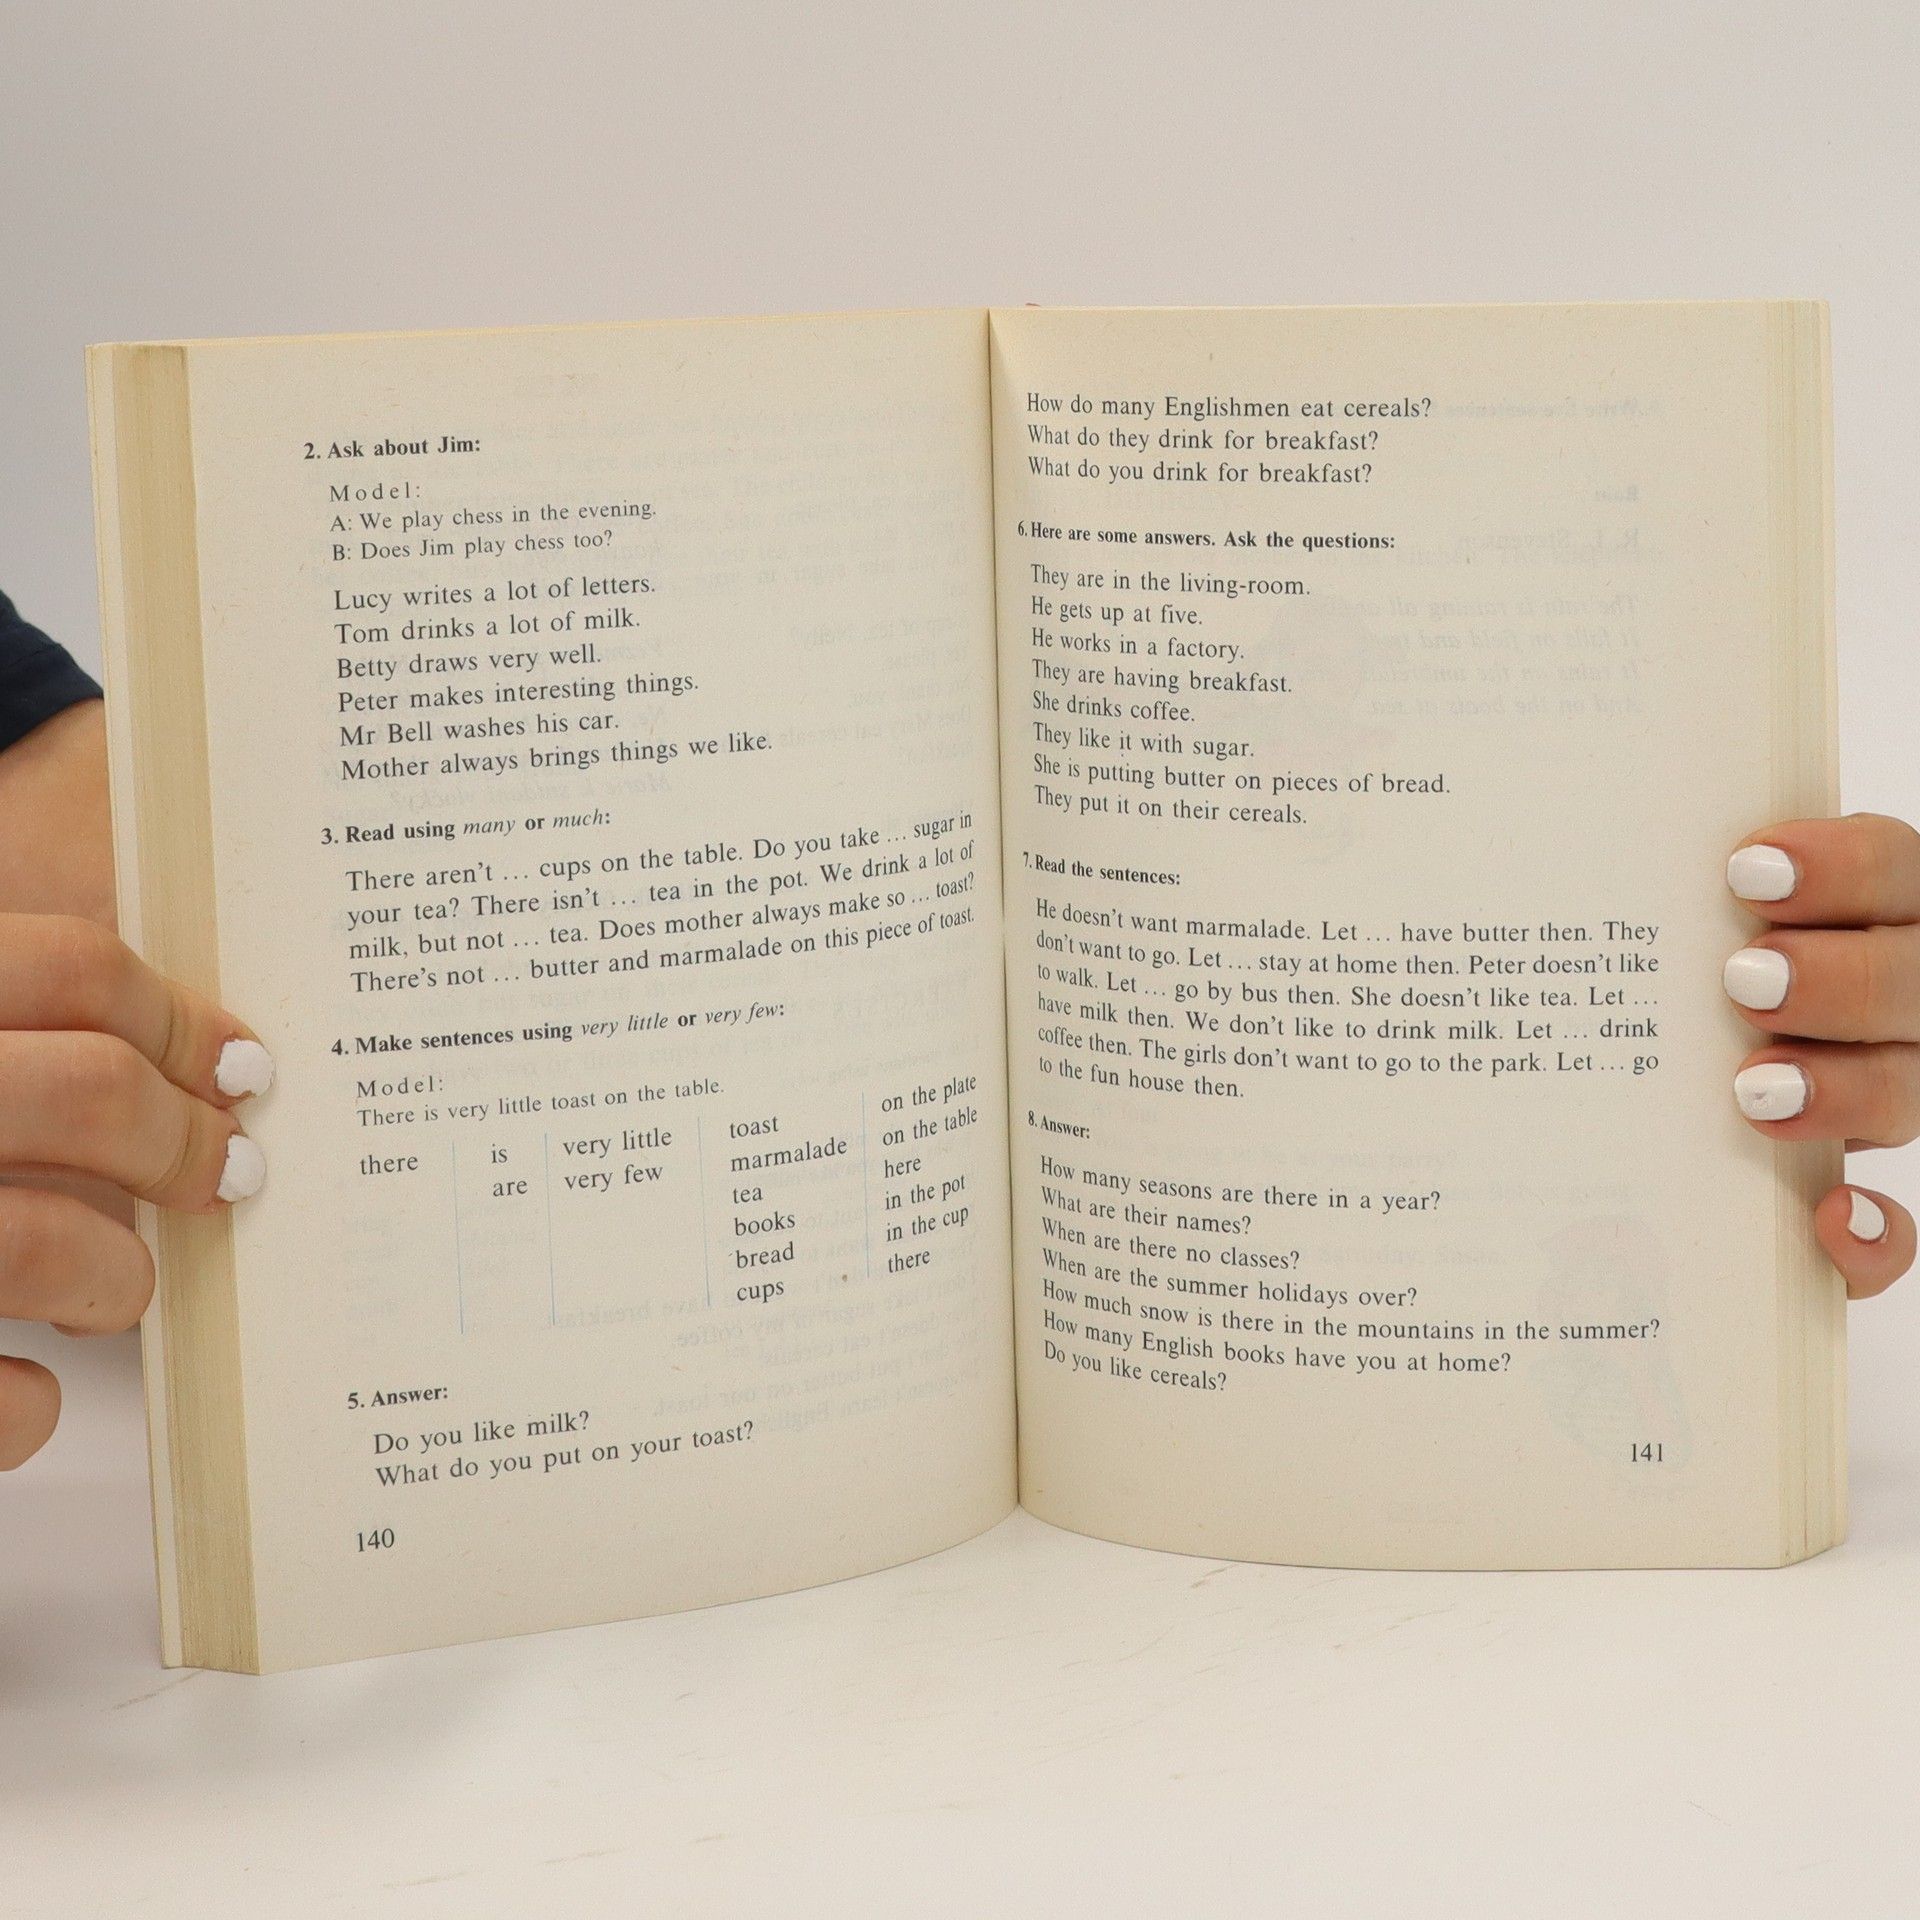 2. Ask about Jim:
Model:
A: We play chess in the evening.
B: Does Jim play chess too?
Lucy writes a lot of letters.
Tom drinks a lot of milk.
Betty draws very well.
Peter makes interesting things.
Mr Bell washes his car.
Mother always brings things we like.
3. Read using many or much:
There aren't ... cups on the table. Do you take ... sugar in
your tea? There isn't ... tea in the pot. We drink a lot of
milk, but not ... tea. Does mother always make so ... toast?
There's not ... butter and marmalade on this piece of toast.
4. Make sentences using very little or very few:
Model:
There is very little toast on the table.
there is very little toast on the plate
are very few marmalade on the table
tea here
books in the pot
bread in the cup
cups there
5. Answer:
Do you like milk?
What do you put on your toast?
140
How do many Englishmen eat cereals?
What do they drink for breakfast?
What do you drink for breakfast?
6. Here are some answers. Ask the questions:
They are in the living-room.
He gets up at five.
He works in a factory.
They are having breakfast.
She drinks coffee.
They like it with sugar.
She is putting butter on pieces of bread.
They put it on their cereals.
7. Read the sentences:
He doesn't want marmalade. Let ... have butter then. They
don't want to go. Let ... stay at home then. Peter doesn't like
to walk. Let ... go by bus then. She doesn't like tea. Let ...
have milk then. We don't like to drink milk. Let ... drink
coffee then. The girls don't want to go to the park. Let ... go
to the fun house then.
8. Answer:
How many seasons are there in a year?
What are their names?
When are there no classes?
When are the summer holidays over?
How much snow is there in the mountains in the summer?
How many English books have you at home?
Do you like cereals?
141